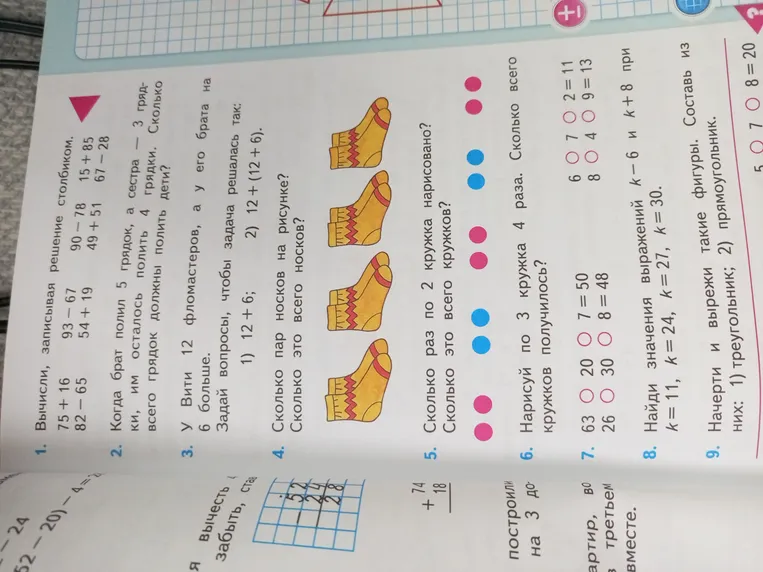 1. Вычисли, записывая решение столбиком.
75 + 16 93 − 67 90 − 78 15 + 85
82 − 65 54 + 19 49 + 51 67 − 28
2. Когда брат полил 5 грядок, а сестра — 3 гряд-
ки, им осталось полить 4 грядки. Сколько
всего грядок должны полить дети?
3. У Вити 12 фломастеров, а у его брата на
6 больше.
Задай вопросы, чтобы задача решалась так:
1) 12 + 6; 2) 12 + (12 + 6).
4. Сколько пар носков на рисунке?
Сколько это всего носков?
5. Сколько раз по 2 кружка нарисовано?
Сколько это всего кружков?
6. Нарисуй по 3 кружка 4 раза. Сколько всего
кружков получилось?
7. 63 ○ 20 ○ 7 = 50 6 ○ 7 ○ 2 = 11
26 ○ 30 ○ 8 = 48 8 ○ 4 ○ 9 = 13
8. Найди значения выражений k − 6 и k + 8 при
k = 11, k = 24, k = 27, k = 30.
9. Начерти и вырежи такие фигуры. Составь из
них: 1) треугольник; 2) прямоугольник.
5 ○ 7 ○ 8 = 20
± ?
− 24
52 − 20) − 4 =
я вычесть
забыть,
− 52
24
28
+ 74
18
построили
на 3 до
артир, во
третьем
вместе.